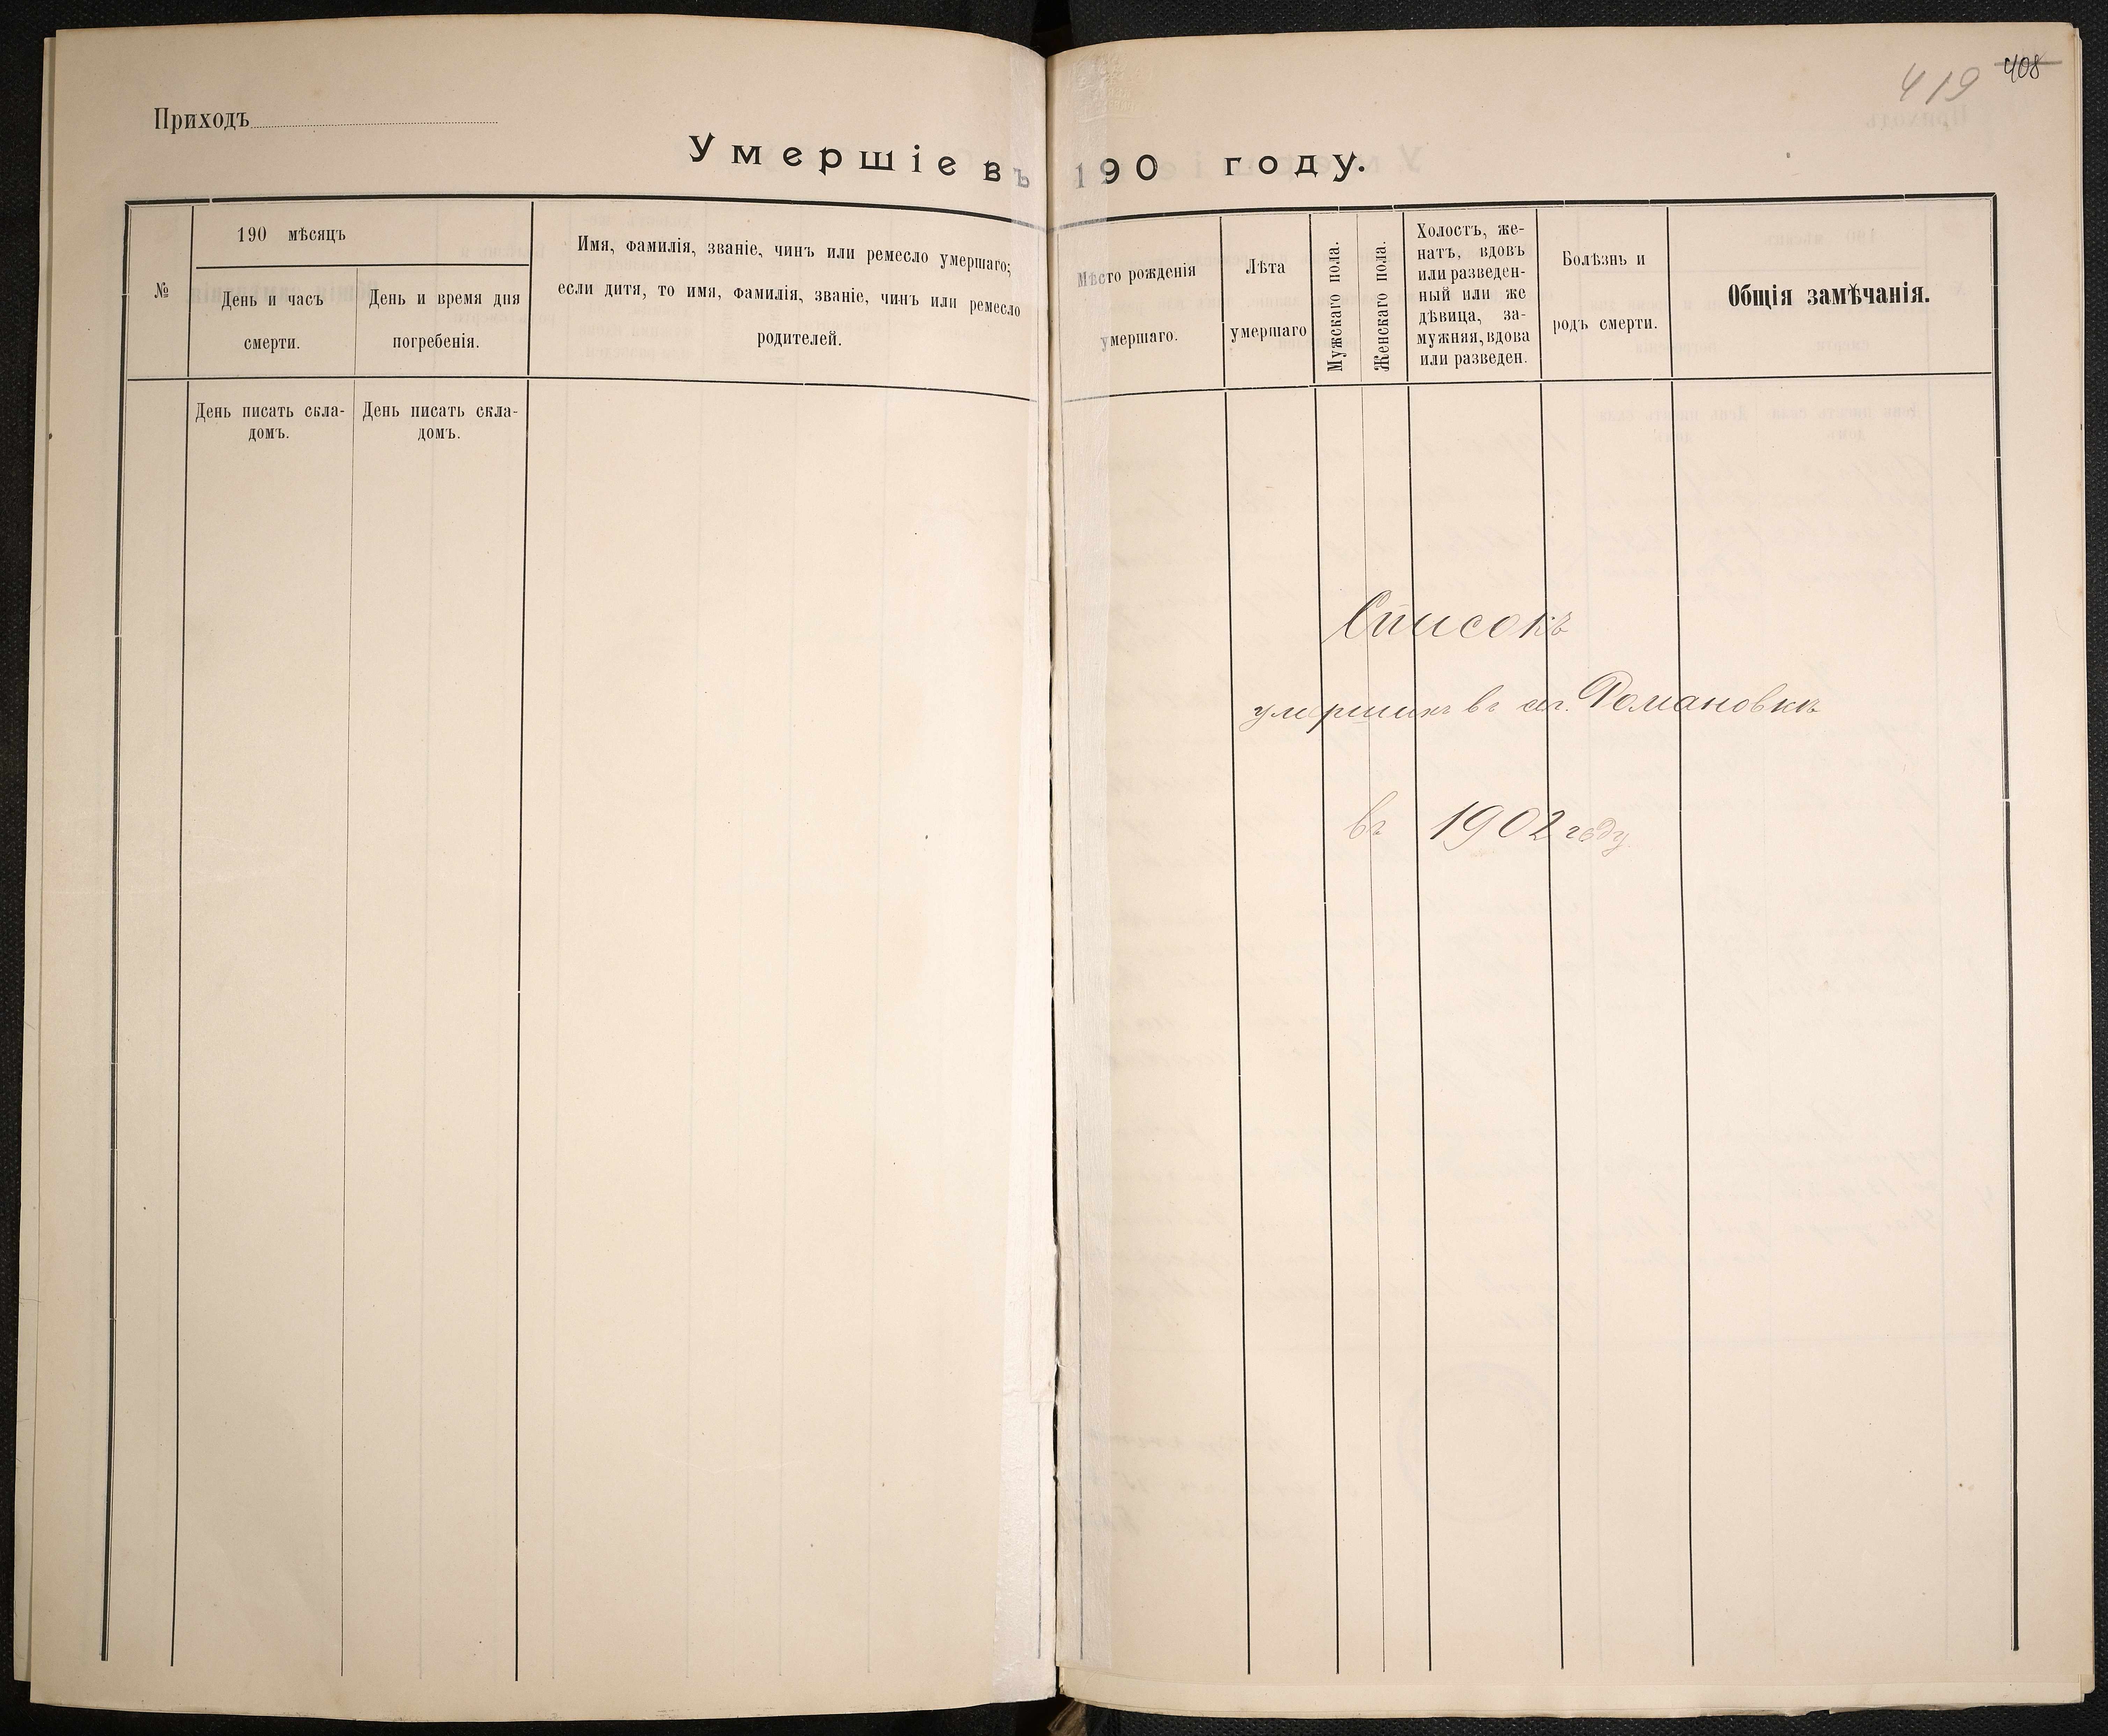 Приходъ
419 408
Умершіе въ 190 году.
№
190 мѣсяцъ
День и часъ
смерти.
День и время дня
погребенія.
Имя, фамилія, званіе, чинъ или ремесло умершаго;
если дитя, то имя, фамилія, званіе, чинъ или ремесло
родителей.
Мѣсто рожденія
умершаго.
Лѣта
умершаго
Мужскаго пола.
Женскаго пола.
Холостъ, же-
натъ, вдовъ
или разведен-
ный или же
дѣвица, за-
мужняя, вдова
или разведен.
Болѣзнь и
родъ смерти.
Общія замѣчанія.
День писать скла-
домъ.
День писать скла-
домъ.
Списокъ
умершихъ въ Романовкѣ
въ 1902 году